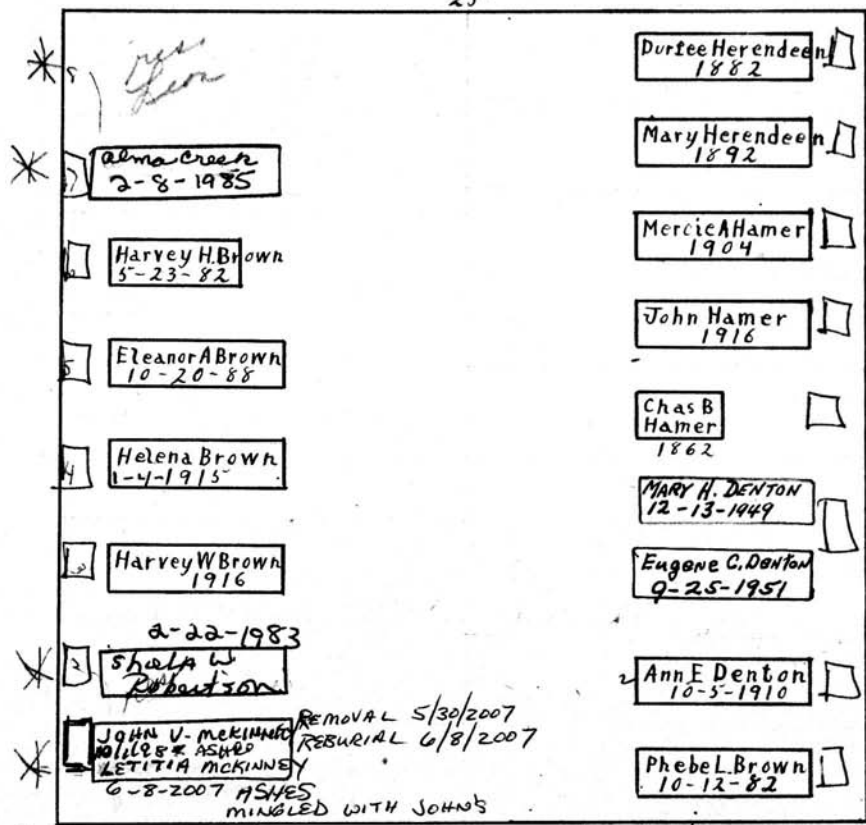 8
Leon
7
Alma Creek
2-8-1985
6
Harvey H. Brown
5-23-82
5
Eleanor A Brown
10-20-88
4
Helena Brown
1-4-1915
3
Harvey W Brown
1916
2-22-1983
2
W
Robertson
JOHN V. McKINNEY
ASHES
LETITIA McKINNEY
6-8-2007 ASHES
MINGLED WITH JOHN'S
REMOVAL 5/30/2007
REBURIAL 6/8/2007
Durfee Herendeen
1882
Mary Herendeen
1892
Mercie A Hamer
1904
John Hamer
1916
Chas B
Hamer
1862
MARY H. DENTON
12-13-1949
Eugene C. Denton
9-25-1951
2
Ann E Denton
10-5-1910
Phebe L. Brown
10-12-82